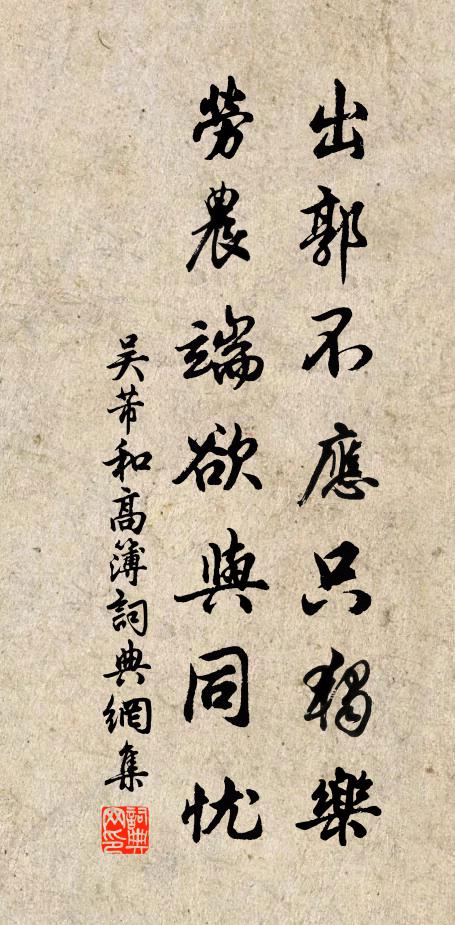 出郭不應只獨樂
勞農端欲與同忧
吴芾和高簿詞典網集
詞典网印